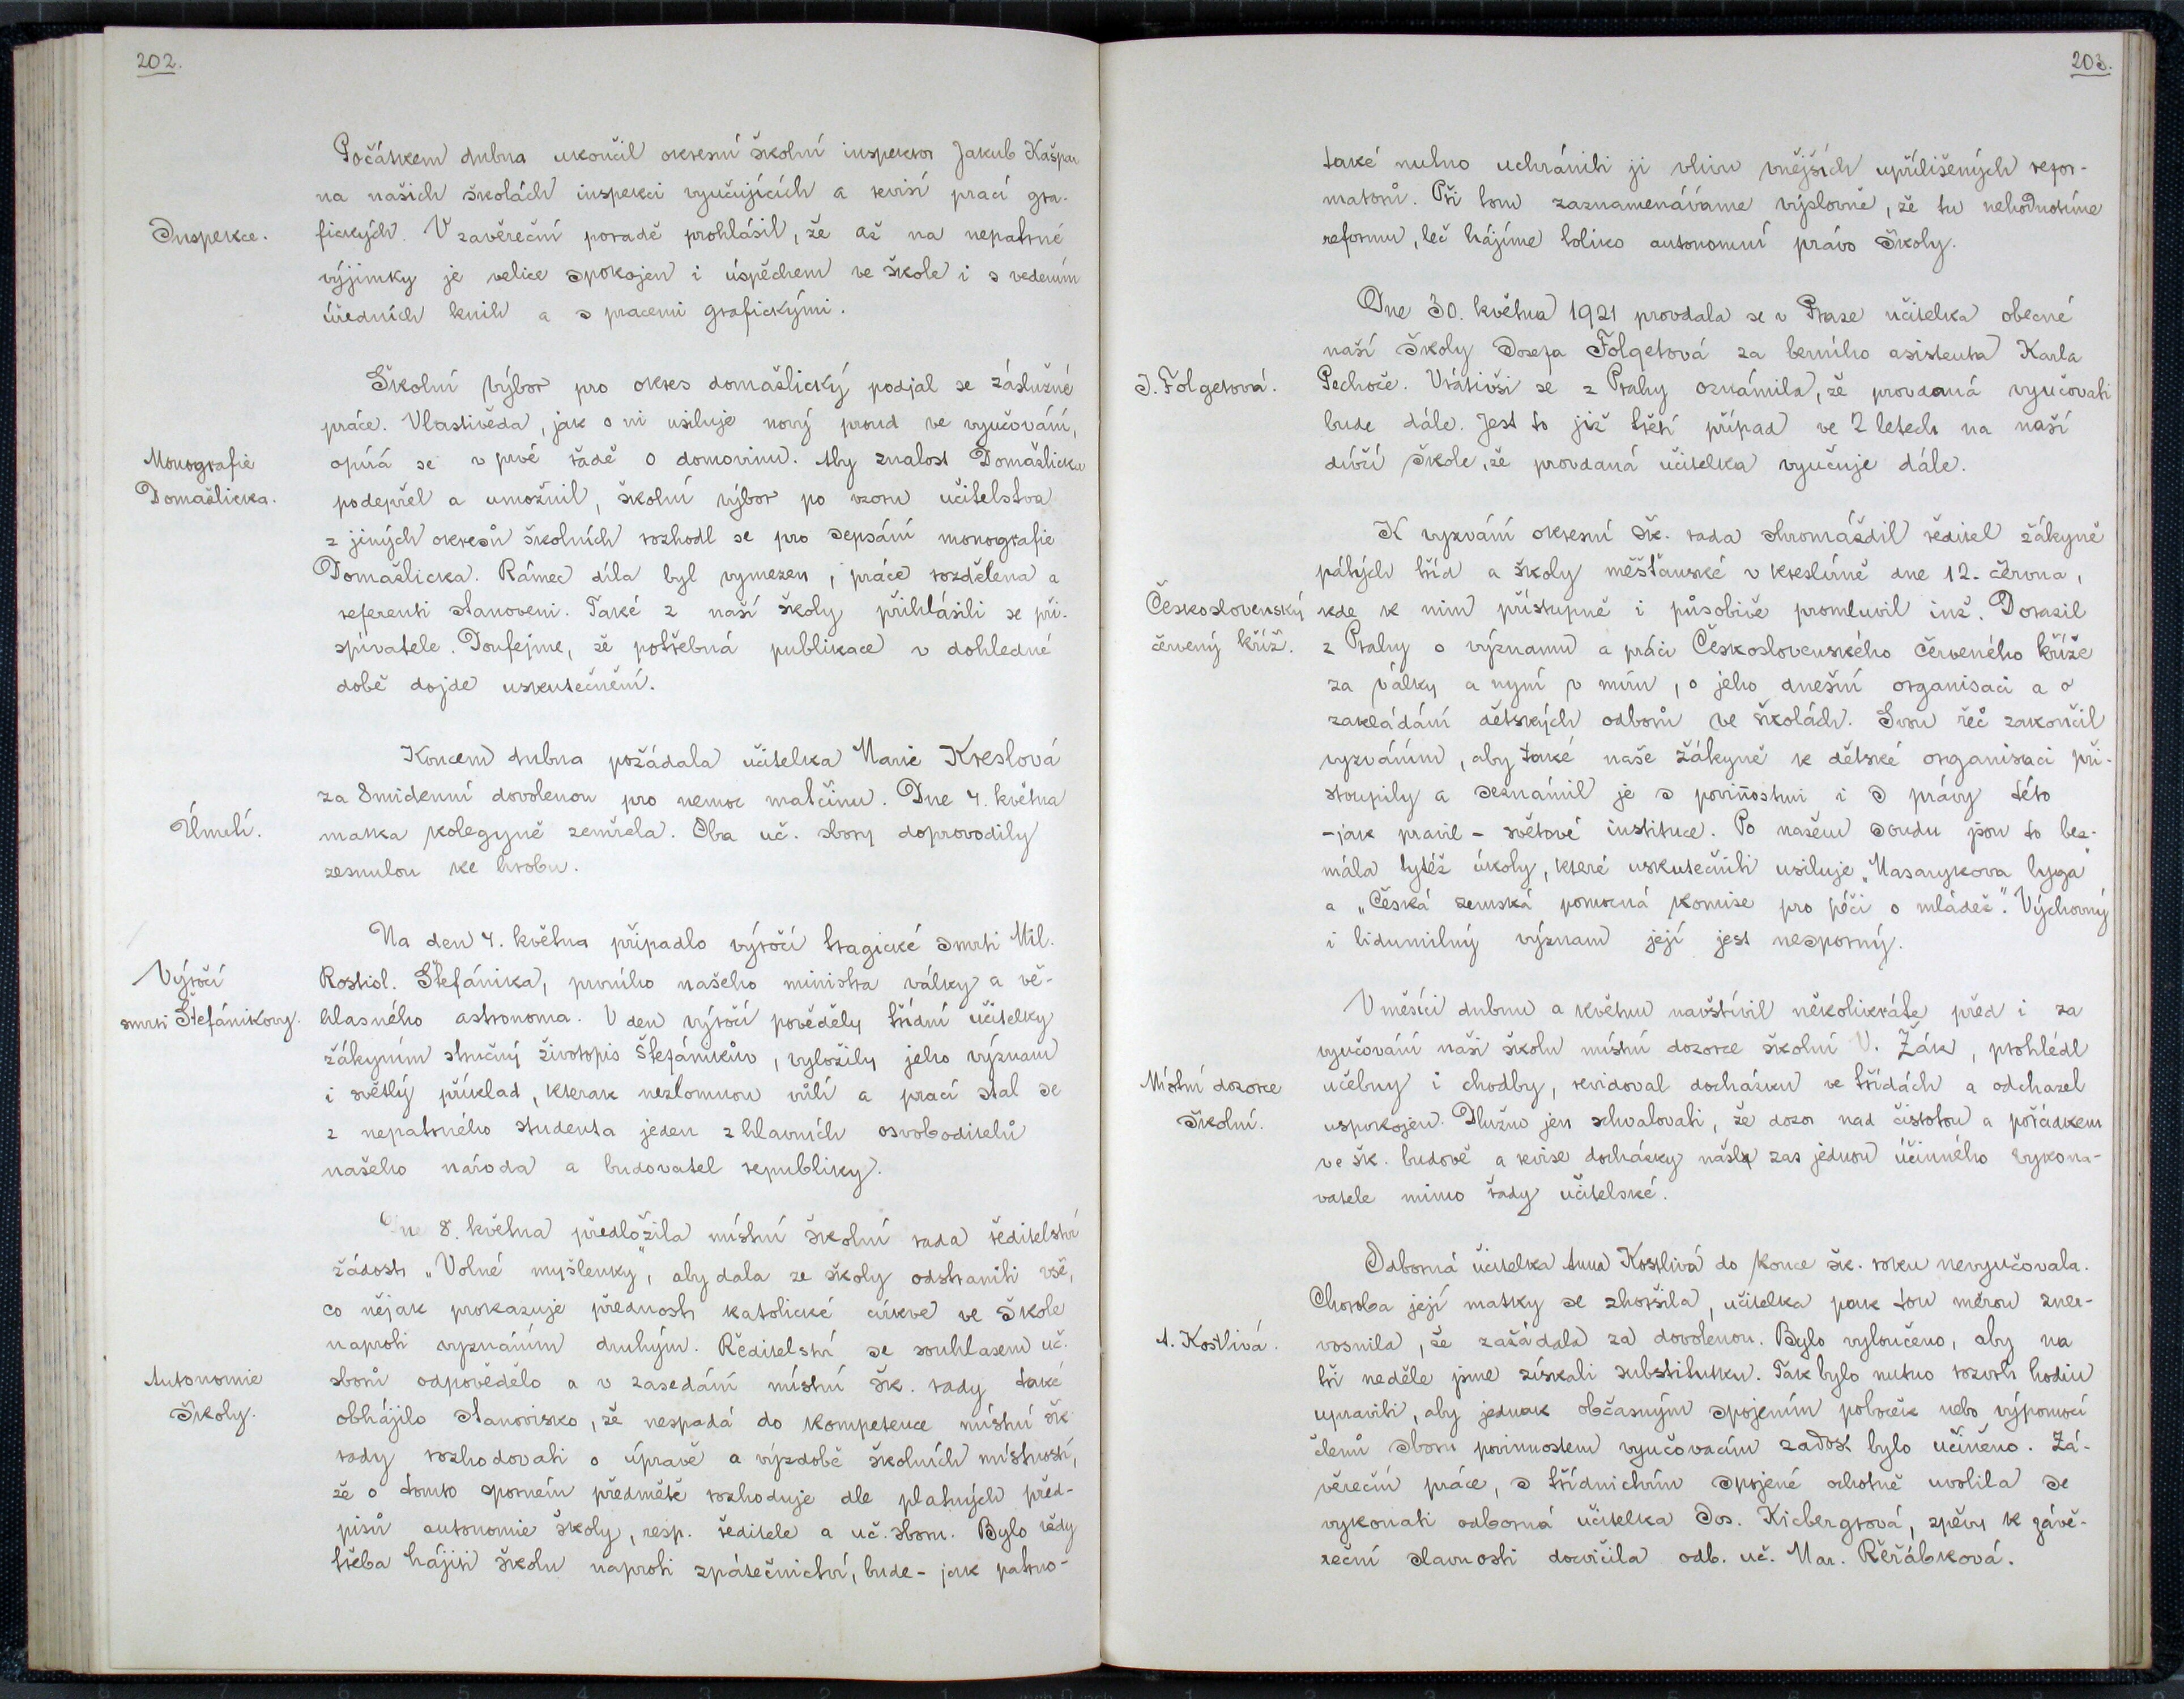 202.
Počátkem dubna ukončil okresní školní inspektor Jakub Kašpar
na našich školách inspekci vyučujících a revisí prací gra-
Inspekce.
fických. V závěreční poradě prohlásil, že až na nepatrné
výjimky je velice spokojen i úspěchem ve škole i s vedením
úředních knih a s pracemi grafickými.
Školní výbor pro okres domažlický podjal se záslužné
práce. Vlastivěda, jak o ni usiluje nový proud ve vyučování,
Monografie
Domažlicka.
opírá se v prvé řadě o domovinu. Aby znalost Domažlicka
podepřel a umožnil, školní výbor po vzoru učitelstva
z jiných okresů školních rozhodl se pro sepsání monografie
Domažlicka. Rámec díla byl vymezen, práce rozdělena a
referenti stanoveni. Také z naší školy přihlásili se při-
spívatele. Doufejme, že potřebná publikace v dohledné
době dojde uskutečnění.
Koncem dubna požádala učitelka Marie Kreslová
za 8midenní dovolenou pro nemoc matčinu. Dne 4. května
Úmrtí.
matka kolegyně zemřela. Oba uč. sbory doprovodily
zesnulou ke hrobu.
Na den 4. května připadlo výročí tragické smrti Mil.
Výročí
smrti Štefánikovy.
Rostisl. Štefánika, prvního našeho ministra války a vě-
hlasného astronoma. V den výročí pověděly třídní učitelky
žákyním stručný životopis Štefánikův, vyložily jeho význam
i světlý příklad, kterak nezlomnou vůlí a prací stal se
z nepatrného studenta jeden z hlavních osvoboditelů
našeho národa a budovatel republiky.
Dne 8. května předložila místní školní rada ředitelství
žádost „Volné myšlenky“, aby dala ze školy odstraniti vše,
co nějak prokazuje přednost katolické církve ve škole
naproti vyznáním druhým. Ředitelství se souhlasem uč.
Autonomie
školy.
sborů odpovědělo a v zasedání místní šk. rady také
obhájilo stanovisko, že nespadá do kompetence místní šk.
rady rozhodovati o úpravě a výzdobě školních místností,
že o tomto sporném předmětě rozhoduje dle platných před-
pisů autonomie školy, resp. ředitele a uč. sboru. Bylo tedy
třeba hájiti školu naproti zpátečnictví, bude - jak patrno -
203.
také nutno uchrániti ji vlivu vnějších upřílišených refor-
matorů. Při tom zaznamenáváme výslovně, že tu nehodnotíme
reformu, leč hájíme toliko autonomní právo školy.
Dne 30. května 1921 provdala se v Praze učitelka obecné
naší školy Josefa Folgetová za berního asistenta Karla
J. Folgetová.
Pechoče. Vrátivši se z Prahy oznámila, že provdaná vyučovati
bude dále. Jest to již třetí případ ve 2 letech na naší
dívčí škole, že provdaná učitelka vyučuje dále.
K vyzvání okresní šk. rada shromáždil ředitel žákyně
pátých tříd a školy měšťanské v kreslírně dne 12. června,
Československý
červený kříž.
kde k nim přístupně i působivě promluvil inž. Dorazil
z Prahy o významu a práci Československého červeného kříže
za války a nyní v míru, o jeho dnešní organisaci a o
zakládání dětských odborů ve školách. Svou řeč zakončil
vyzváním, aby také naše žákyně k dětské organisaci při-
stoupily a seznámil je s povinostmi i s právy této
- jak pravil - světové instituce. Po našem soudu jsou to bez-
mála tytéž úkoly, které uskutečniti usiluje „Masarykova lyga“
a „Česká zemská pomocná komise pro péči o mládež“. Výchovný
i lidumilný význam její jest nesporný.
V měsíci dubnu a květnu navštívil několikráte před i za
vyučování naši školu místní dozorce školní V. Žák, prohlédl
Místní dozorce
školní.
učebny i chodby, revidoval docházku ve třídách a odcházel
uspokojen. Dlužno jen schvalovati, že dozor nad čistotou a pořádkem
ve šk. budově a revise docházky našly zas jednou účinného vykona-
vatele mimo řady učitelské.
Odborná učitelka Anna Kostlivá do konce šk. roku nevyučovala.
Choroba její matky se zhoršila, učitelka pak tou měrou zner-
A. Kostlivá.
vosnila, že zažádala za dovolenou. Bylo vyloučeno, aby na
tři neděle jsme získali substitutku. Tak bylo nutno rozvrh hodin
upraviti, aby jednak občasným spojením poboček nebo výpomocí
členů sboru povinnostem vyučovacím zadost bylo učiněno. Zá-
věreční práce, s třídnictvím spojené ochotně uvolila se
vykonati odborná učitelka Jos. Kicbergrová, zpěvy k závě-
reční slavnosti docvičila odb. uč. Mar. Řeřábková.